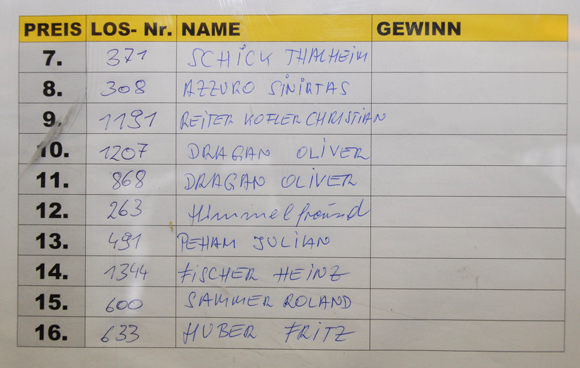 PREIS LOS- Nr. NAME GEWINN
7. 371 SCHICK THALHEIM
8. 308 AZZURO SINIRTAS
9. 1191 REITER KOFLER CHRISTIAN
10. 1207 DRAGAN OLIVER
11. 868 DRAGAN OLIVER
12. 263 Himmelfreund
13. 491 PEHAM JULIAN
14. 1344 FISCHER HEINZ
15. 600 SAMMER ROLAND
16. 633 HUBER FRITZ